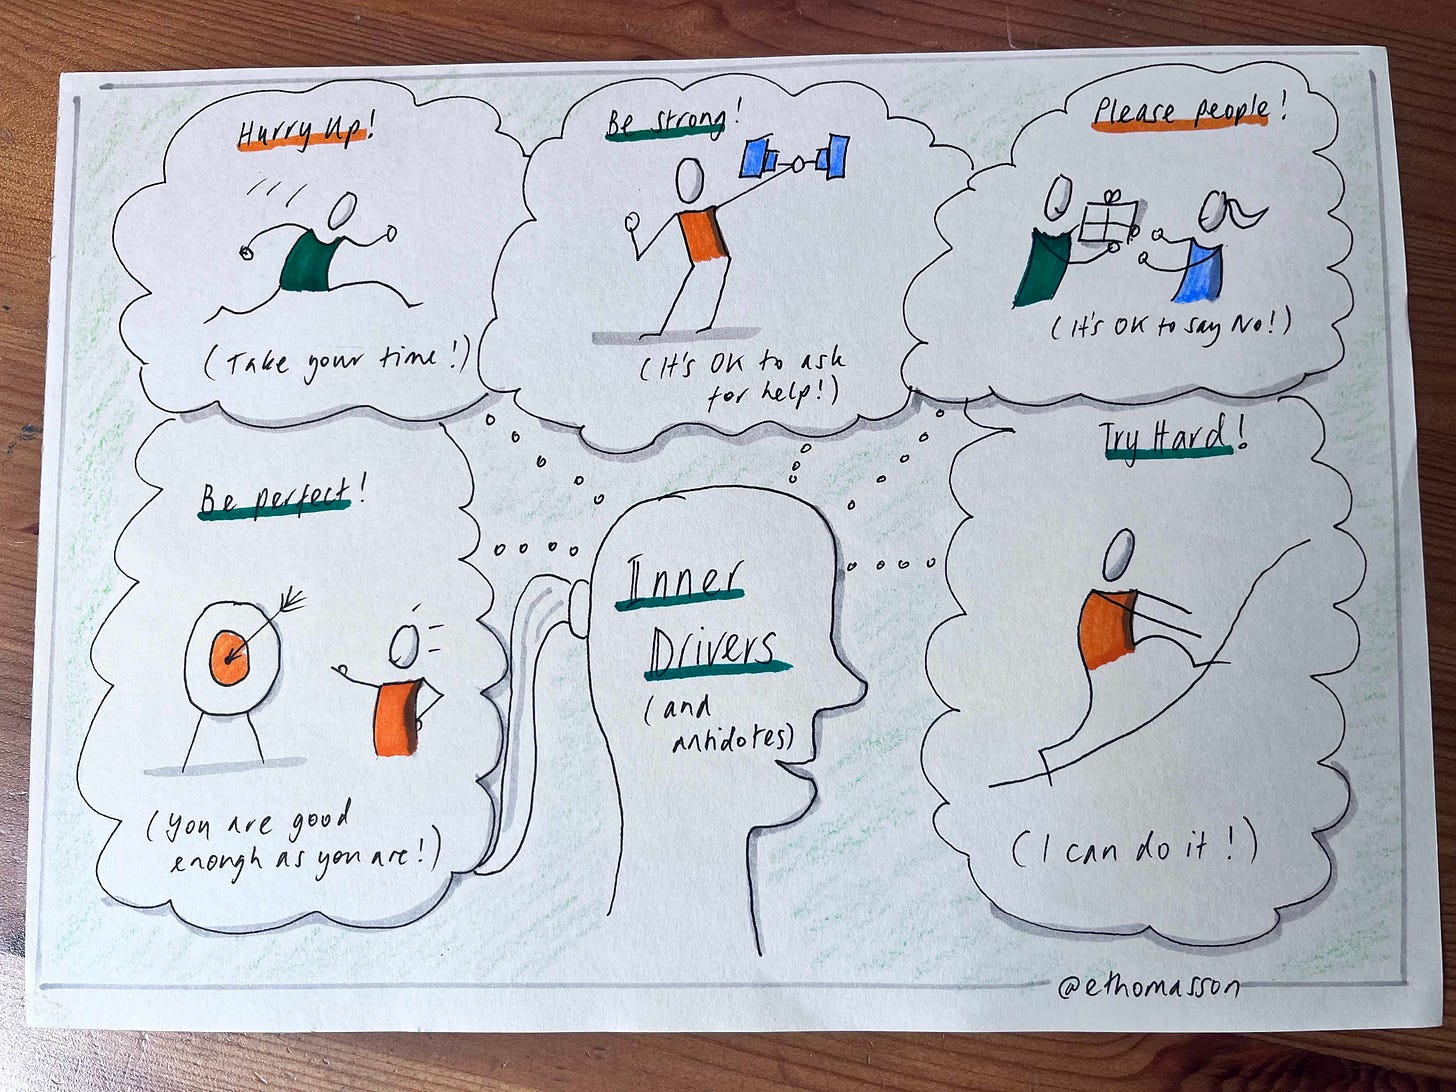 Hurry Up!
(Take your time!)
Be strong!
(It's OK to ask
for help!)
Please people!
(It's OK to say No!)
Be perfect!
(You are good
enough as you are!)
Inner
Drivers
(and
antidotes)
Try Hard!
(I can do it!)
@ethomasson